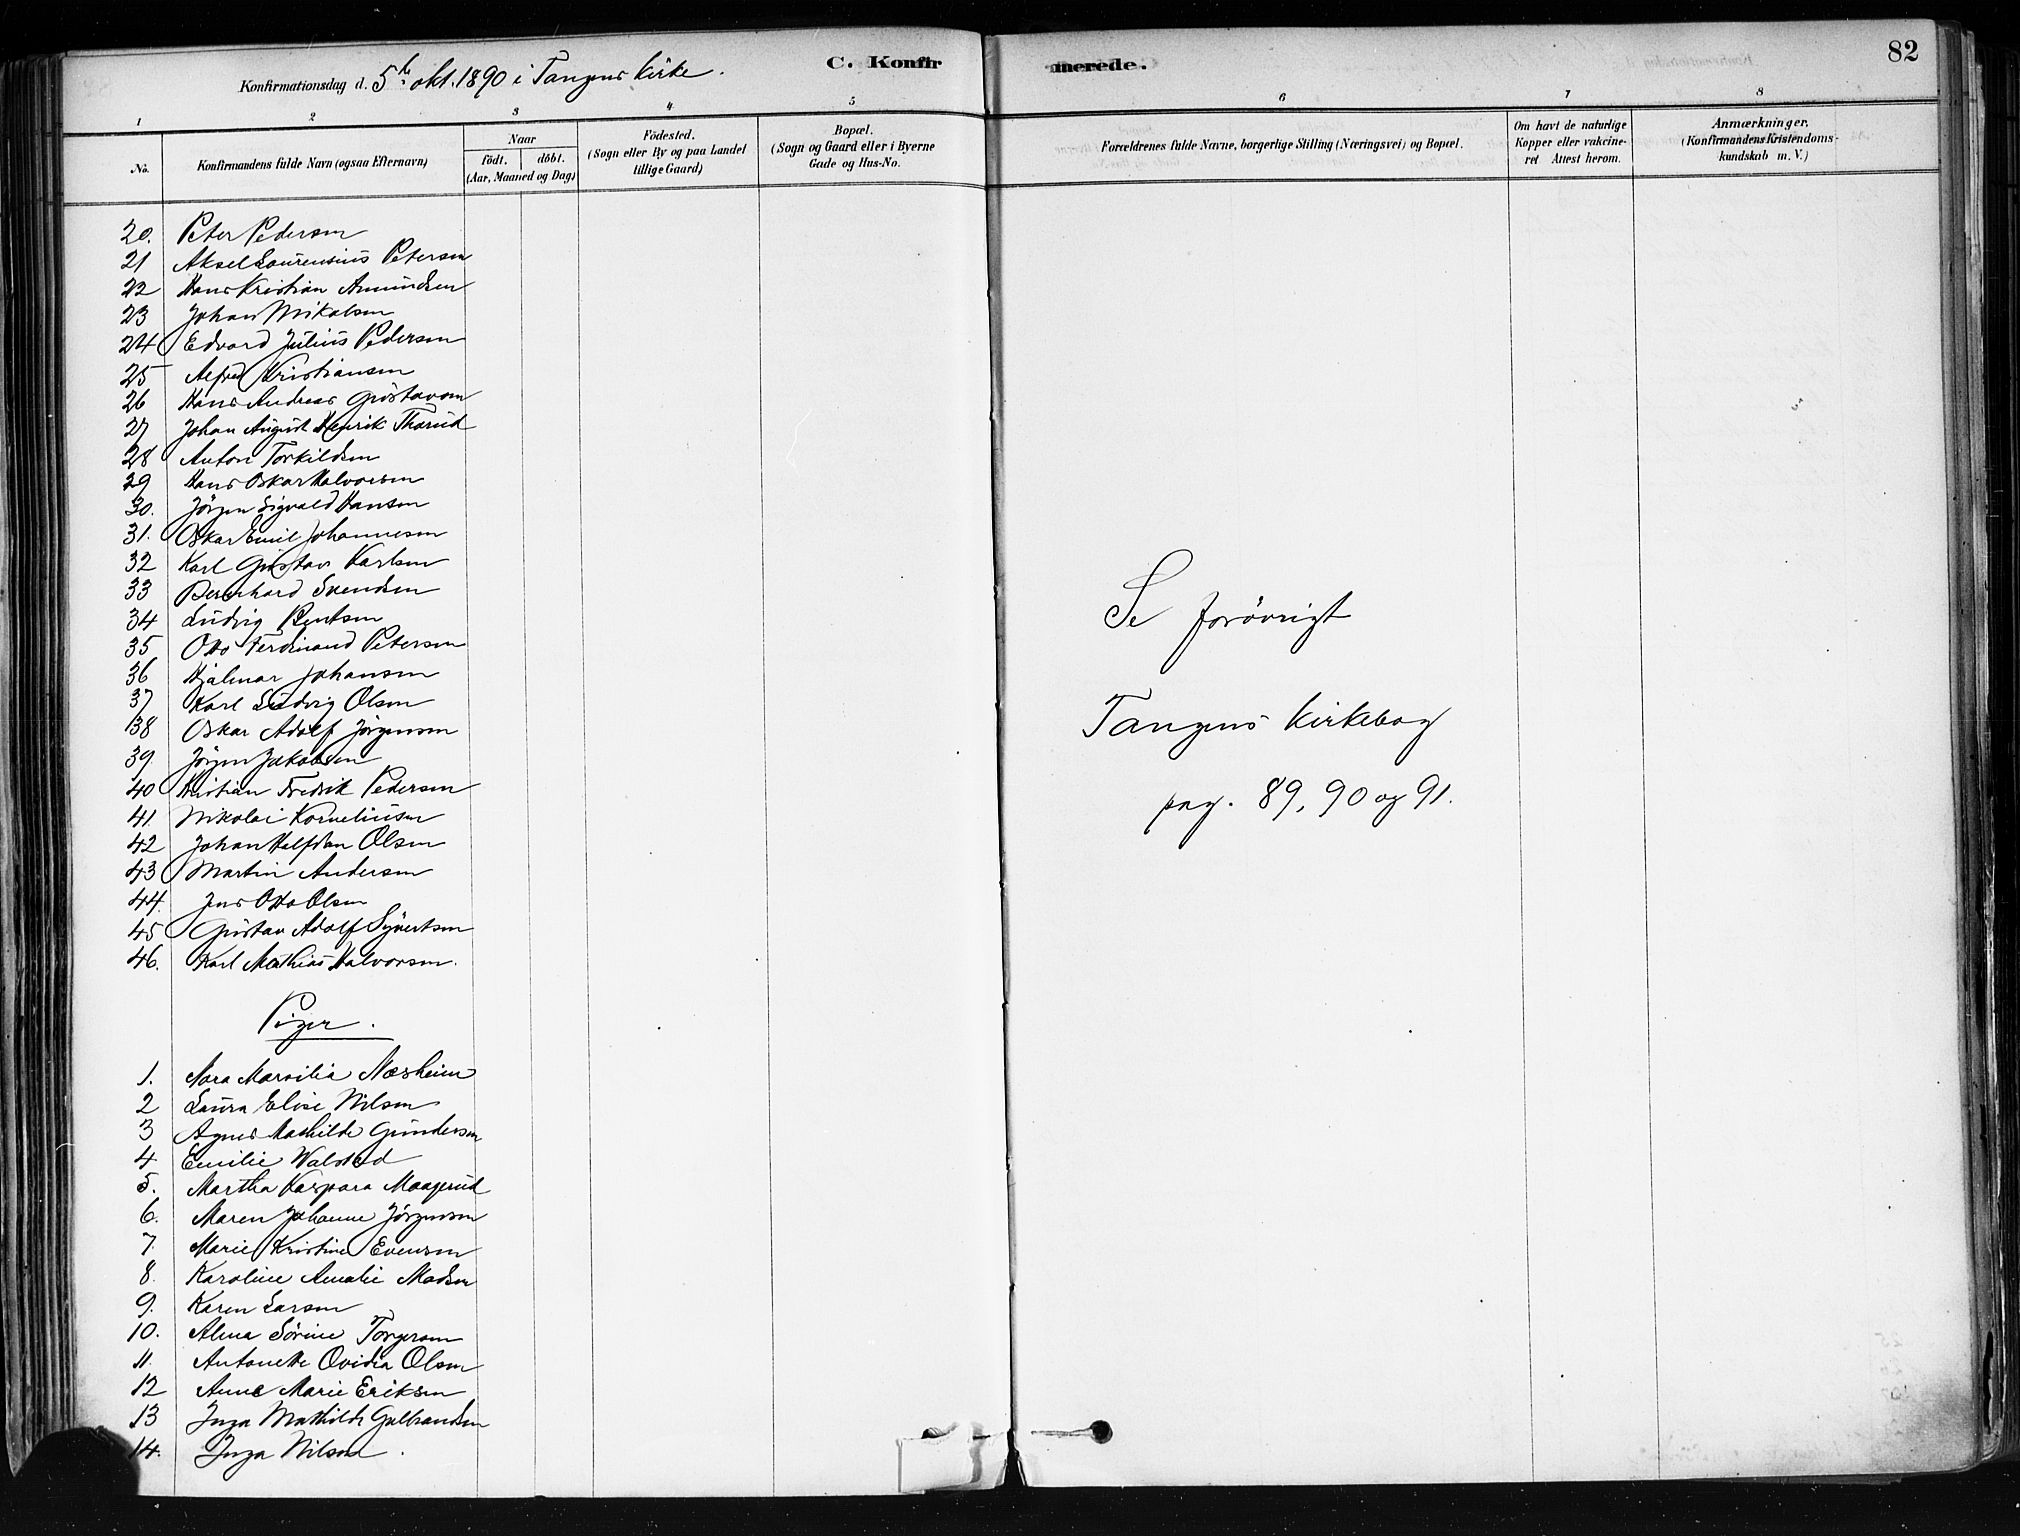 82
Konfirmationsdag d. 5te okt. 1890 i Tangens kirke.
C. Konfirmerede.
1 2 3 4 5 6 7 8
No.
Konfirmandens fulde Navn (ogsaa Efternavn)
Naar
födt. döbt.
(Aar, Maaned og Dag)
Födested.
(Sogn eller By og paa Landet
tillige Gaard)
Bopæl.
(Sogn og Gaard eller i Byerne
Gade og Hus-No.
Forældrenes fulde Navne, borgerlige Stilling (Næringsvei) og Bopæl.
Om havt de naturlige
Kopper eller vakcine-
ret Attest herom.
Anmærkninger.
(Konfirmandens Kristendoms-
kundskab m. V.)
20. Peter Pedersen
21 Aksel Laurensius Petersen
22 Hans Kristian Amundsen
23 Johan Mikalsen
24 Edvard Julius Pedersen
25 Alfred Kristiansen
26 Hans Andreas Gustavsen
27 Johan August Henrik Thorud
28 Anton Torkildsen
29 Hans Oskar Halvorsen
30. Jörgen Sigvald Hansen
31. Oskar Emil Johannesen
32 Karl Gustav Karlsen
33 Bernhard Svendsen
34 Ludvig Bentsen
35 Otto Ferdinand Petersen
36 Hjalmar Johansen
37 Karl Ludvig Olsen
38 Oskar Adolf Jörgensen
39. Jörgen Jakobsen
40 Kristian Fredrik Pedersen
41. Nikolai Korneliusen
42 Johan Halfdan Olsen
43 Martin Andersen
44. Jens Otto Olsen
45 Gustav Adolf Syvertsen
46. Karl Mathias Halvorsen.
Piger.
1. Nora Marsilia Næsheim
2 Laura Elise Nilsen
3 Agnes Mathilde Gundersen
4 Emilie Walsted
5. Martha Kaspara Maagerud
6. Maren Johanne Jörgensen
7. Marie Kristine Evensen
8. Karoline Amalie Madsen
9. Karen Larsen
10. Alma Sörine Torgersen
11. Antonette Ovidia Olsen
12 Anne Marie Eriksen
13 Inga Mathilde Gulbrandsen
14. Inga Nilsen.
Se forövrigt
Tangens kirkebog
pag. 89, 90 og 91.